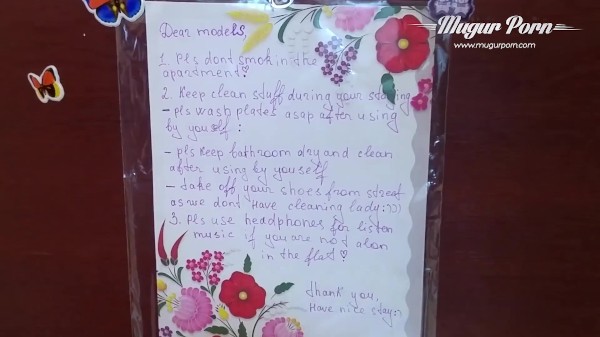 Mugur Porn
www.mugurporn.com
Dear models,
1. Pls dont smok in the
apartment♡
2. Keep clean stuff during your staying
- pls wash plates asap after using
by youself :
- pls keep bathroom dry and clean
after using by youself
- take off your shoes from street
as we dont Have cleaning lady:)))
3. Pls use headphones for listen
music if you are not alon
in the flat♡
thank you,
Have nice stay:)